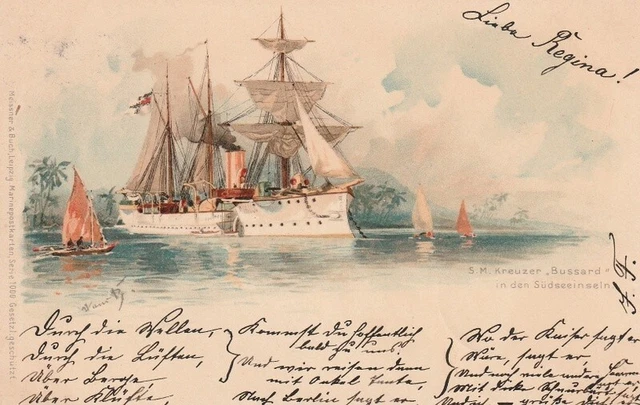 Liebe Regina!
Meissner & Buch, Leipzig Marinepostkarten, Serie 1000 Gesetzl. geschützt
S. M. Kreuzer „Bussard"
in den Südseeinseln
Durch die Wellen,
Durch die Lüften,
Über Berge
Über Klüfte,
Kommst Du hoffentlich
bald zu uns
Und wir reisen dann
mit Onkel Tante,
Nach Berlin sagt er
Wo der Kaiser sagt er
Wäre, sagt er,
Und noch viele andre
Mit
Und noch – grüße Dich